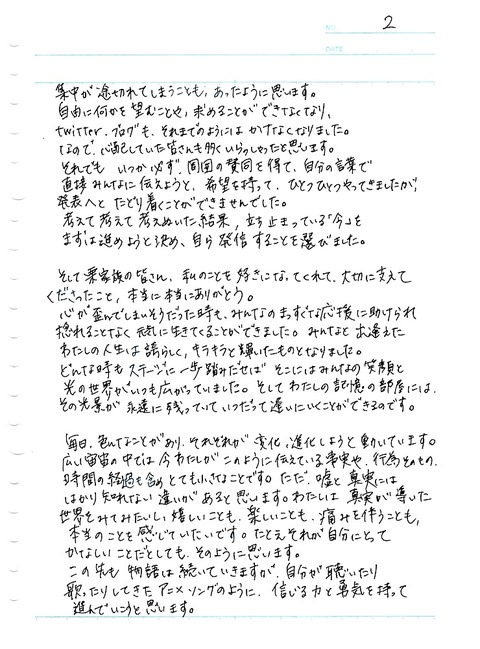 NO. 2
DATE
集中が途切れてしまうことも、あったように思います。
自由に何かを望むことや、求めることができなくなり、
twitter、ブログも、それまでのようにはかけなくなりました。
なので、心配していた皆さんも多くいらっしゃったと思います。
それでも いつか必ず、周囲の賛同を得て、自分の言葉で
直接みんなに伝えようと、希望を持って、ひとつひとつやってきましたが、
発表へと たどり着くことができませんでした。
考えて考えて考えぬいた結果、立ち止まっている「今」を
まずは進めようと決め、自ら発信することを選びました。
そして栗家族の皆さん、私のことを好きになってくれて、大切に支えて
くださったこと、本当に本当にありがとう。
心が歪んでしまいそうだった時も、みんなのまっすぐな応援に助けられ
捻れることなく元気に生きてくることができました。みんなと出逢えた
わたしの人生は誇らしく、キラキラと輝いたものとなりました。
どんな時もステージに一歩踏みだせば そこにはみんなの笑顔と
光の世界がいつも広がっていました。そしてわたしの記憶の部屋には、
その光景が 永遠に残っていて、いつだって逢いにいくことができるのです。
毎日、色んなことがあり、それぞれが 変化、進化しようと動いています。
広い宇宙の中では今わたしが このように伝えている事実や、行為そのもの、
時間の経過も含め とても小さなことです。ただ、嘘と真実には
はかり知れない違いが あると思います。わたしは 真実が導いた
世界をみてみたいし、嬉しいことも、楽しいことも、痛みを伴うことも、
本当のことを感じていたいです。たとえそれが自分にとって
かなしいことだとしても、そのように思います。
この先も 物語は続いていきますが、自分が聴いたり
歌ったりしてきたアニメソングのように、信じる力と勇気を持って
進んでいこうと思います。